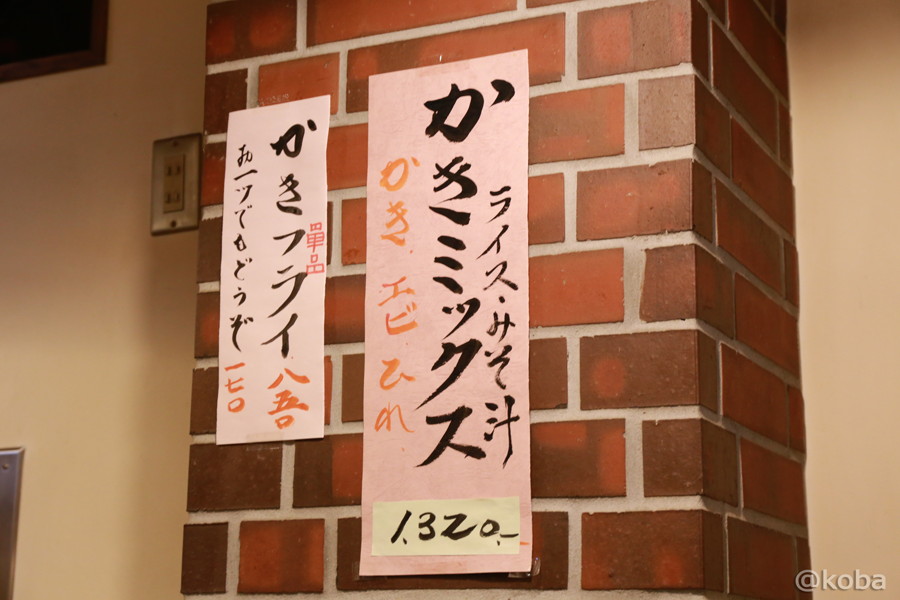 ライス・みそ汁
かきミックス
かき、エビ ひれ
1,320.-
単品
かきフライ 八五〇
お一ツでもどうぞ 一七〇
@koba